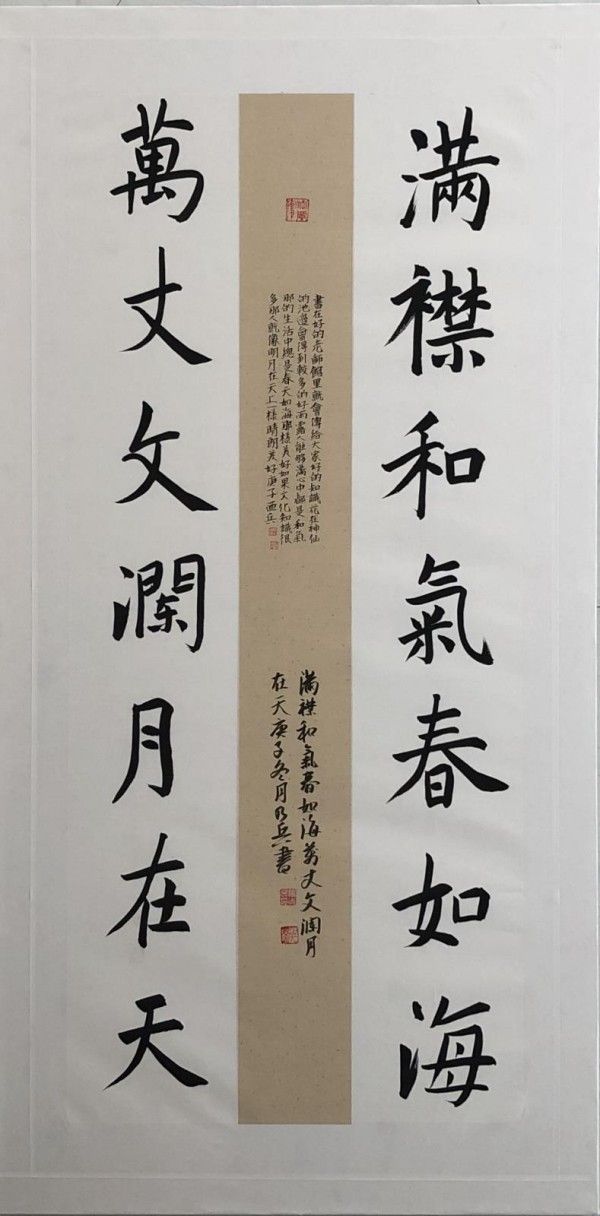 滿襟和氣春如海
書在好的老師個里就會傳給大家好的知識花在神仙
的池邊會得到較多的好雨露人能够滿心中都是和氣
那的生活中總是春天如海那樣美好如果文化知識很
多那人就像明月在天上一樣晴朗美好庚子
滿襟和氣春如海萬丈文瀾月
在天庚子冬月乃兵書
萬丈文瀾月在天